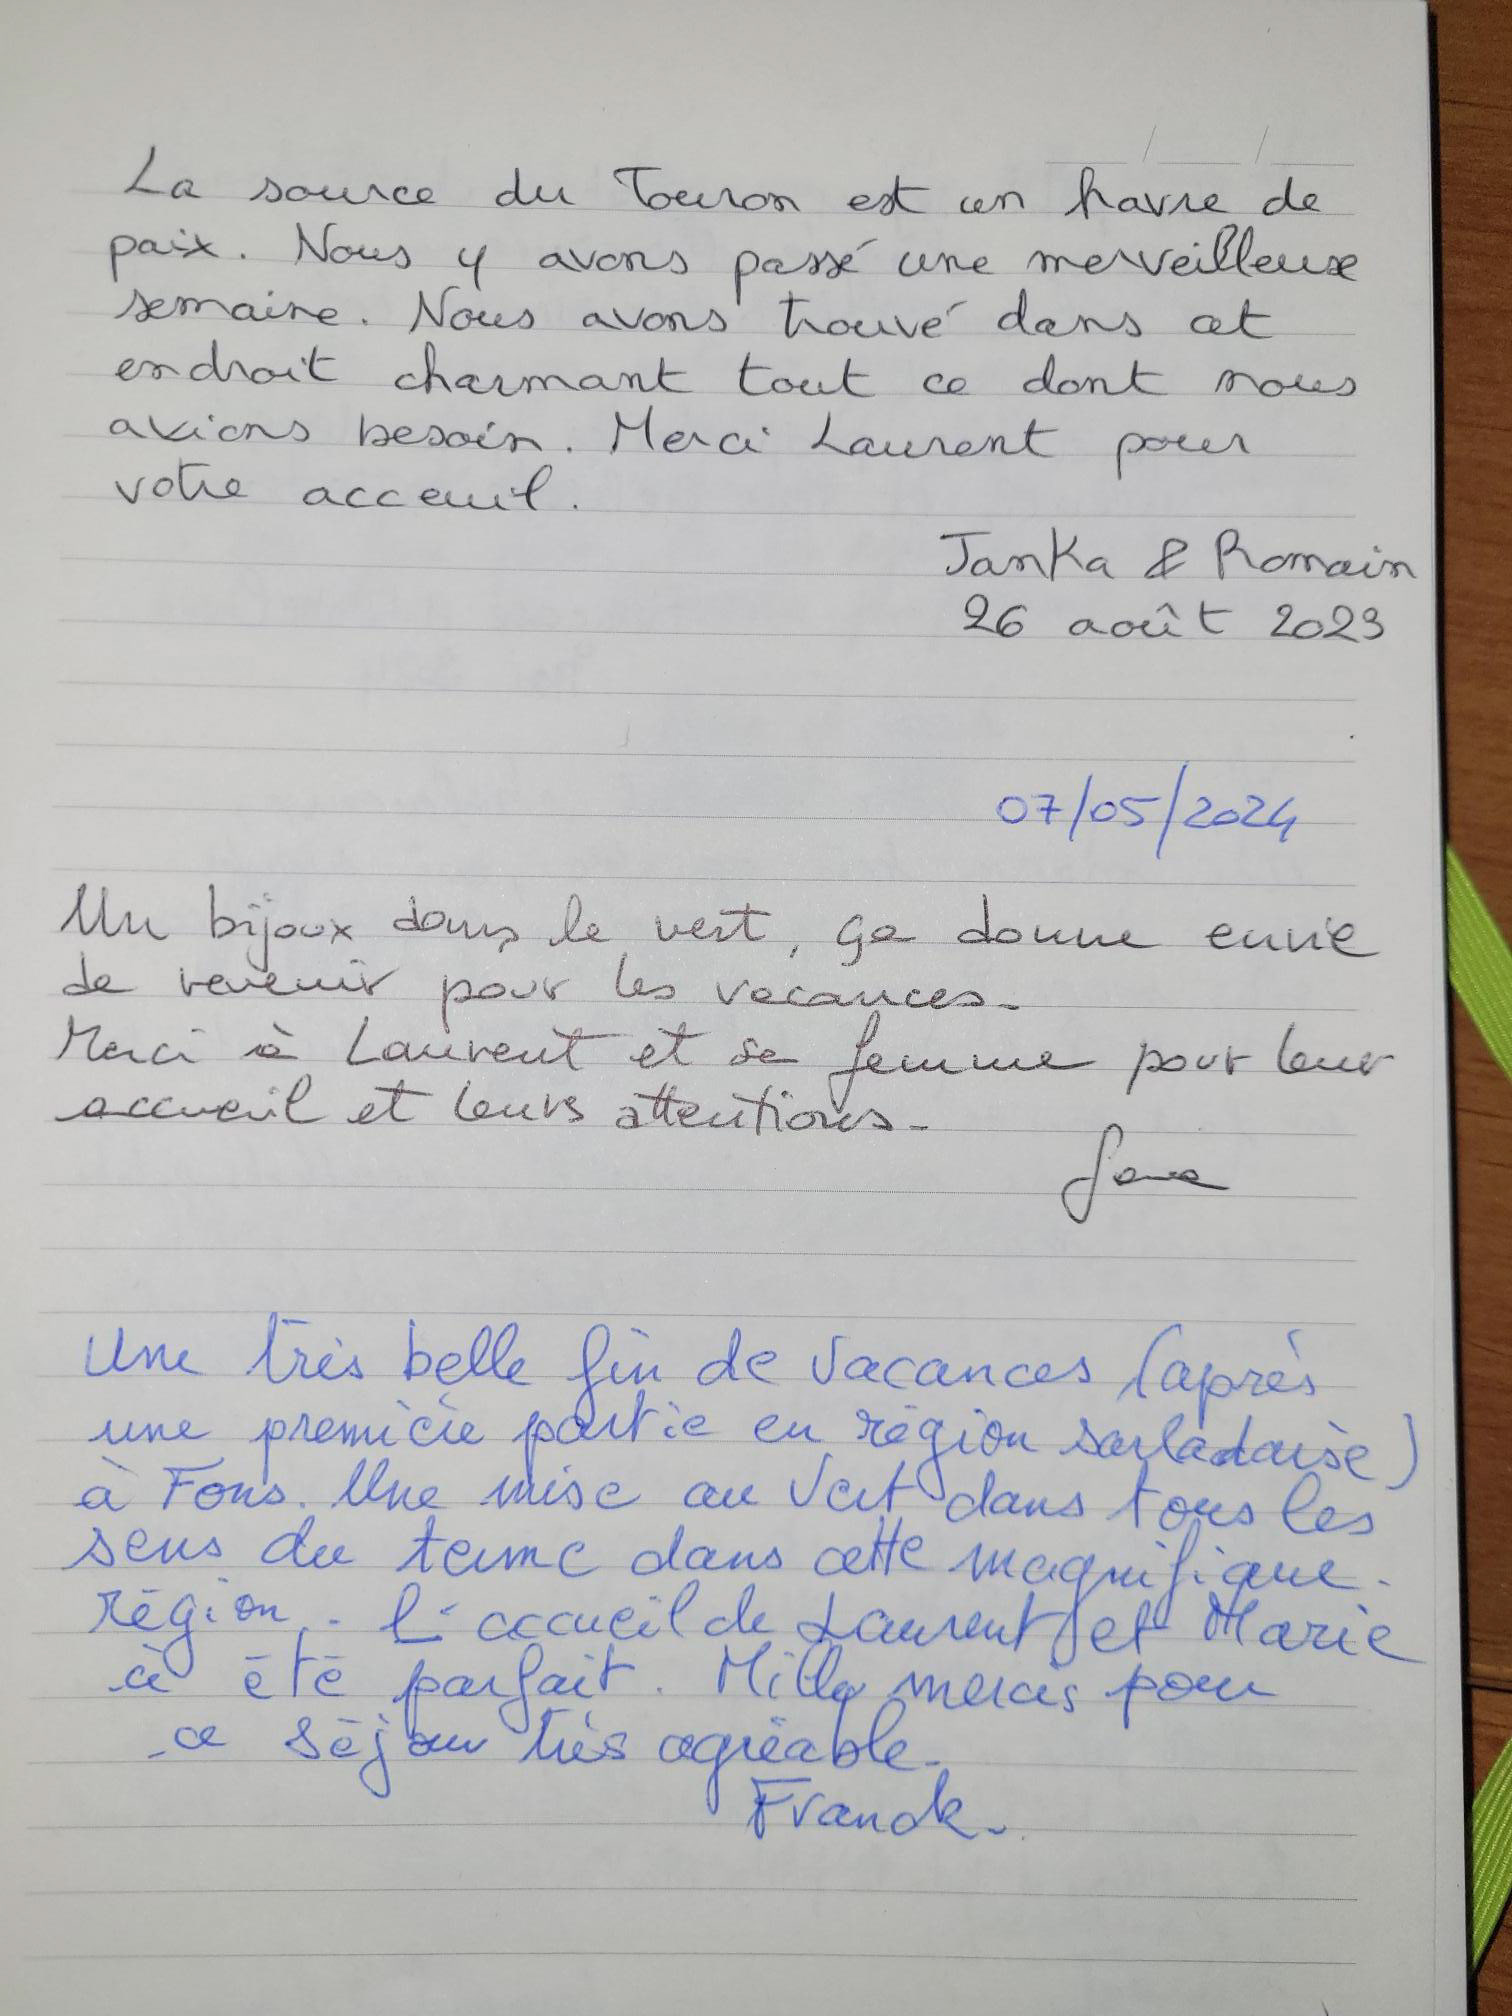 La source du Touron est un havre de
paix. Nous y avons passé une merveilleuse
semaine. Nous avons trouvé dans cet
endroit charmant tout ce dont nous
avions besoin. Merci Laurent pour
votre acceuil.
Janka & Romain
26 août 2023
07/05/2024
Un bijoux dans le vert, ça donne envie
de revenir pour les vacances.
Merci à Laurent et sa femme pour leur
accueil et leurs attentions.
Une très belle fin de vacances (après
une première partie en région sarladaise)
à Fons. Une mise au vert dans tous les
sens du terme dans cette magnifique
région. L'accueil de Laurent et Marie
a été parfait. Mille mercis pour
ce séjour très agréable.
Franck.